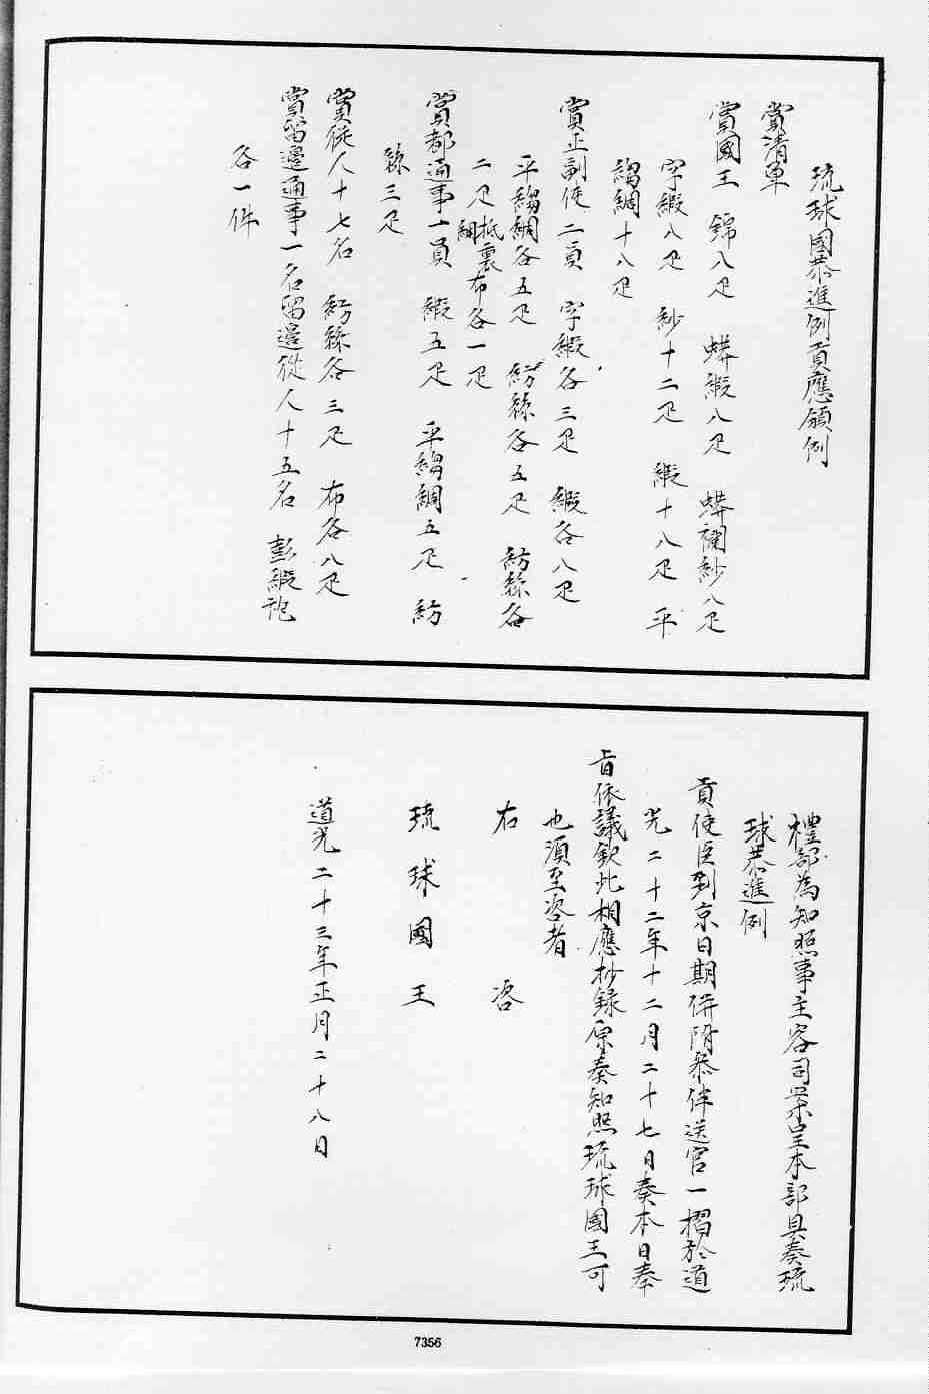 琉球國恭進例貢應領例
賞清單
賞國王　錦八疋　蟒緞八疋　蟒襴紗八疋
字緞八疋　紗十二疋　緞十八疋　平
縐綢十八疋
賞正副使二員　字緞各三疋　緞各八疋
平縐綢各五疋　紡絲各五疋　紡絲各
二疋抵裏綢布各一疋
賞都通事一員　緞五疋　平縐綢五疋　紡
絲三疋
賞從人十七名　紡絲各三疋　布各八疋
賞留邊通事一名留邊從人十五名　彭緞袍
各一件
禮部為知照事主客司案呈本部具奏琉
球恭進例
貢使臣到京日期併隋叅伴送官一摺於道
光二十二年十二月二十七日奏本日奉
旨依議欽此相應抄錄原奏知照琉球國王可
也須至咨者
右咨
琉球國王
道光二十三年正月二十八日
7356